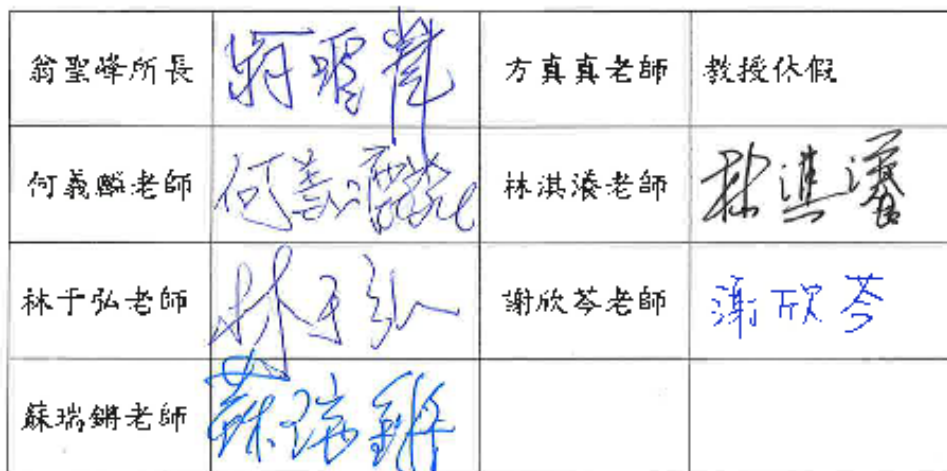 翁聖峰所長 翁聖峰 方真真老師 教授休假
何義麟老師 何義麟 林淇瀁老師 林淇瀁
林于弘老師 林于弘 謝欣芩老師 謝欣芩
蘇瑞鏘老師 蘇瑞鏘